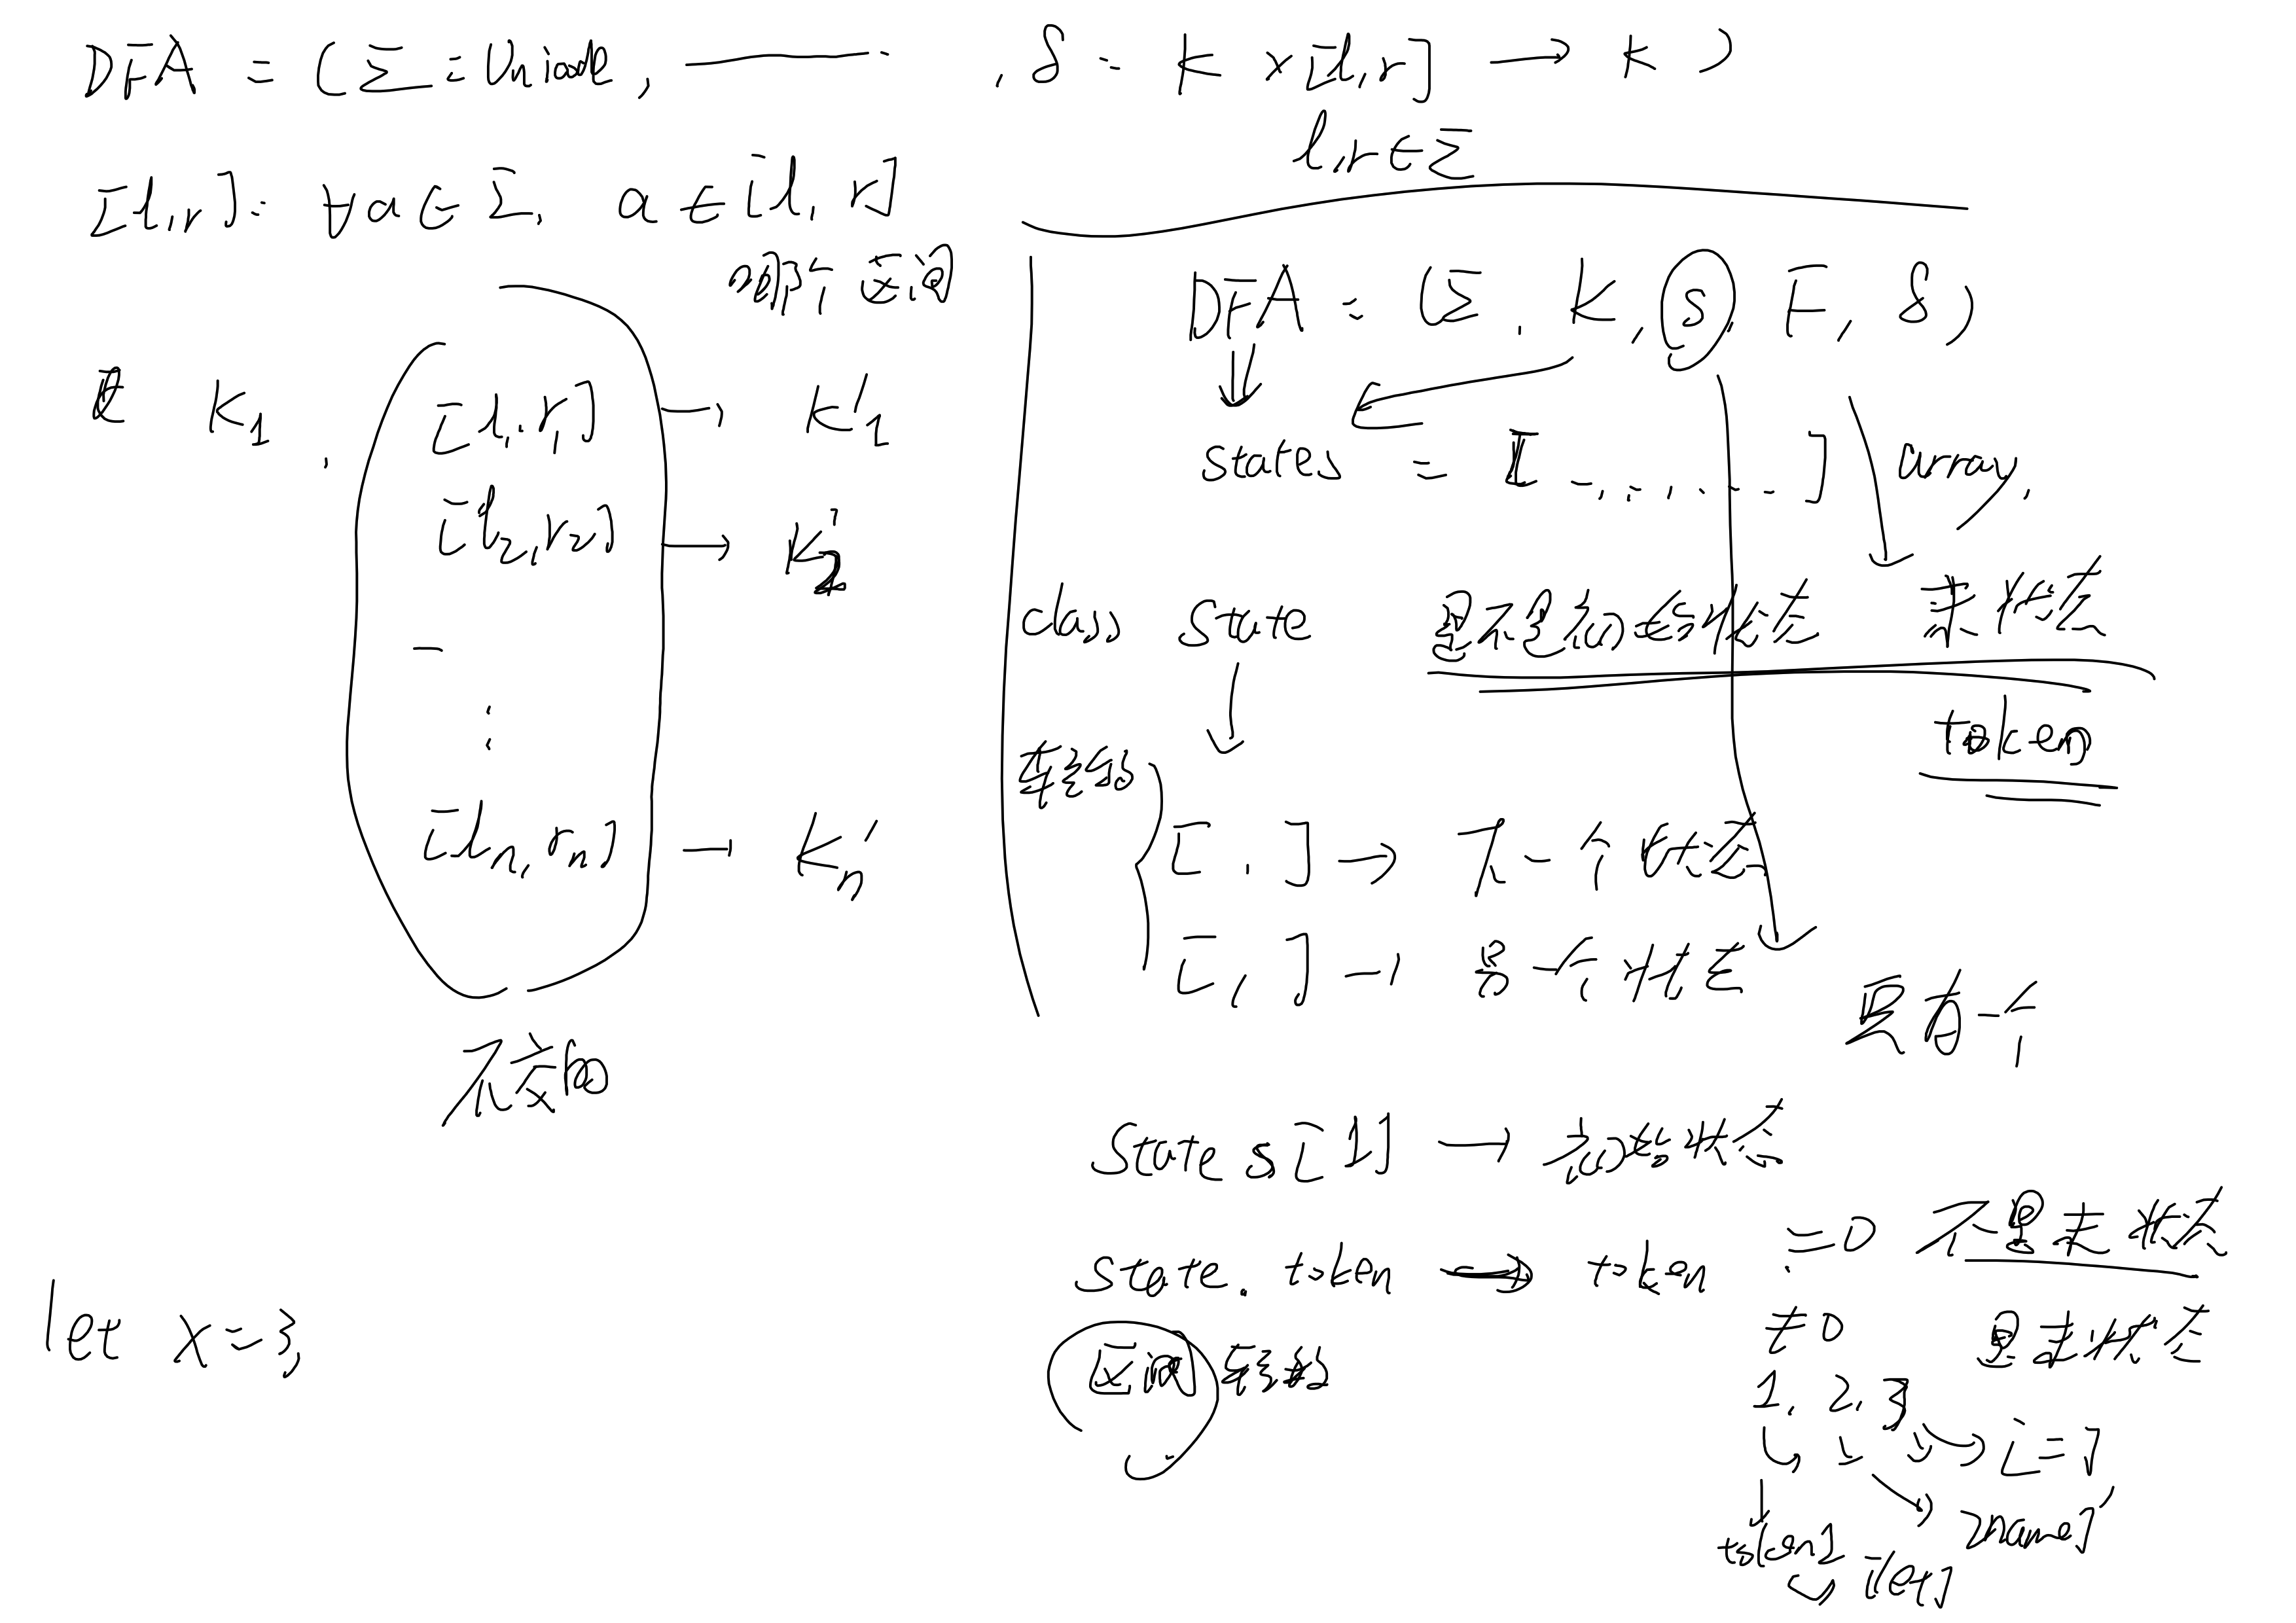 DFA = (Σ = Unicode, ———. , δ = K × [l, r] → K )
l, r ∈ Σ
[l, r]: ∀a ∈ Σ, a ∈ [l, r]
区间
K1 , [l1, r1] → K'1
[l2, r2] → K'2
[ln, rn] → K'n
不交的
let x = 3;
DFA = (Σ, K, s, F, δ)
states = [ . , . . . . ] array,
class state 是不是初始状态 末状态
token
转移的
[ , ] → 下一个状态
[ , ] → 另一个状态
只有一个
States[1] → 初始状态
state. token → token = 0 不是末状态
≠ 0 是末状态
区间 转移
1, 2, 3
[=]
[name]
token [let]